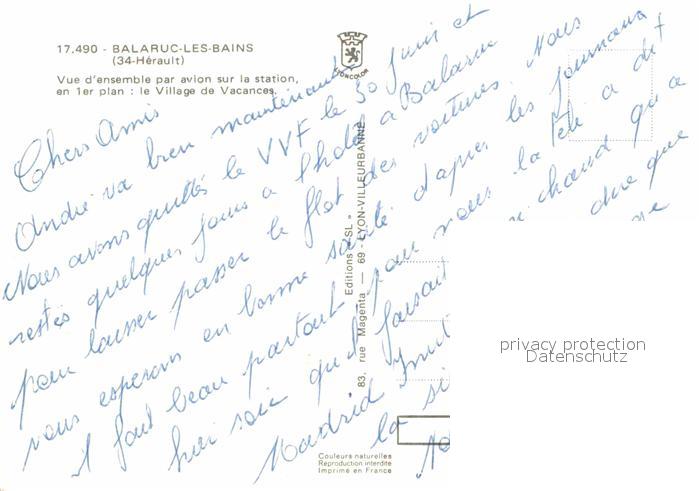 17.490 - BALARUC-LES-BAINS
(34-Hérault)
Vue d'ensemble par avion sur la station,
en 1er plan : le Village de Vacances.
LYONCOLOR
Chers Amis
André va bien maintenant
Nous avons quittés le VVF le 30 juin et
restés quelques jours a l'hotel a Balaruc
pour laisser passer le flot des voitures. Nous
vous esperons en bonne santé d'apres les journaux
il fait beau partout pour nous la télé a dit
hier soir qu'il faisait chaud qu'a
Madrid dire que
la
Editions "SL" 
83, rue Magenta — 69 - LYON-VILLEURBANNE
Couleurs naturelles
Reproduction interdite
Imprimé en France
privacy protection
Datenschutz